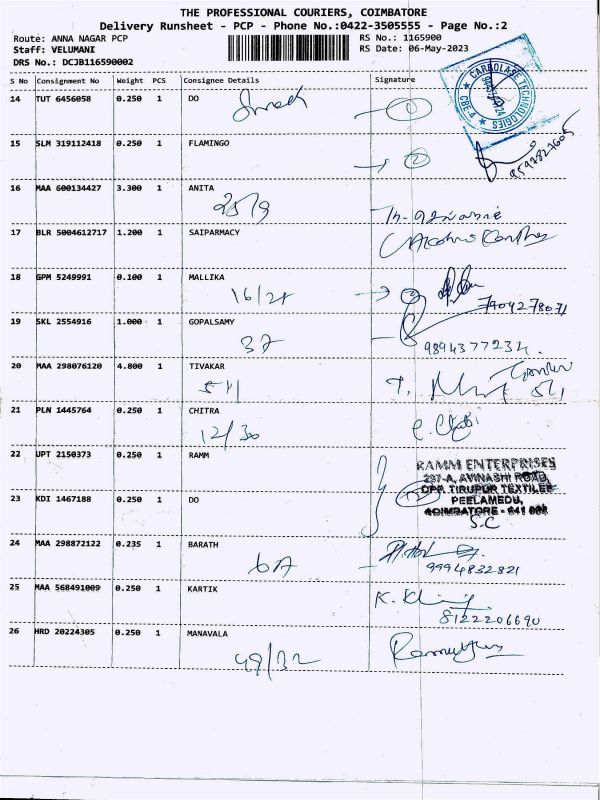 THE PROFESSIONAL COURIERS, COIMBATORE
Delivery Runsheet - PCP - Phone No.:0422-3505555 - Page No.:2
Route: ANNA NAGAR PCP RS No.: 1165900
Staff: VELUMANI RS Date: 06-May-2023
DRS No.: DCJB116590002
S No Consignment No Weight PCS Consignee Details Signature
14 TUT 6456058 0.250 1 DO 1
CARBOLASE TECHNOLOGIES
CBE-4
15 SLM 319112418 0.250 1 FLAMINGO 2
9592827605
16 MAA 600134427 3.300 1 ANITA
25/9
17 BLR 5004612717 1.200 1 SAIPARMACY
18 GPM 5249991 0.100 1 MALLIKA
16/21
7904278071
19 SKL 2554916 1.000 1 GOPALSAMY
37
9894377234.
20 MAA 298076120 4.800 1 TIVAKAR
5/11
21 PLN 1445764 0.250 1 CHITRA
12/30
22 UPT 2150373 0.250 1 RAMM
RAMM ENTERPRISES
237-A, AVINASHI ROAD,
OPP. TIRUPUR TEXTILES
PEELAMEDU,
COIMBATORE - 641 004
S.C
23 KDI 1467188 0.250 1 DO
24 MAA 298872122 0.235 1 BARATH
6A
9994832821
25 MAA 568491009 0.250 1 KARTIK
8122206690
26 HRD 20224305 0.250 1 MANAVALA
49/32